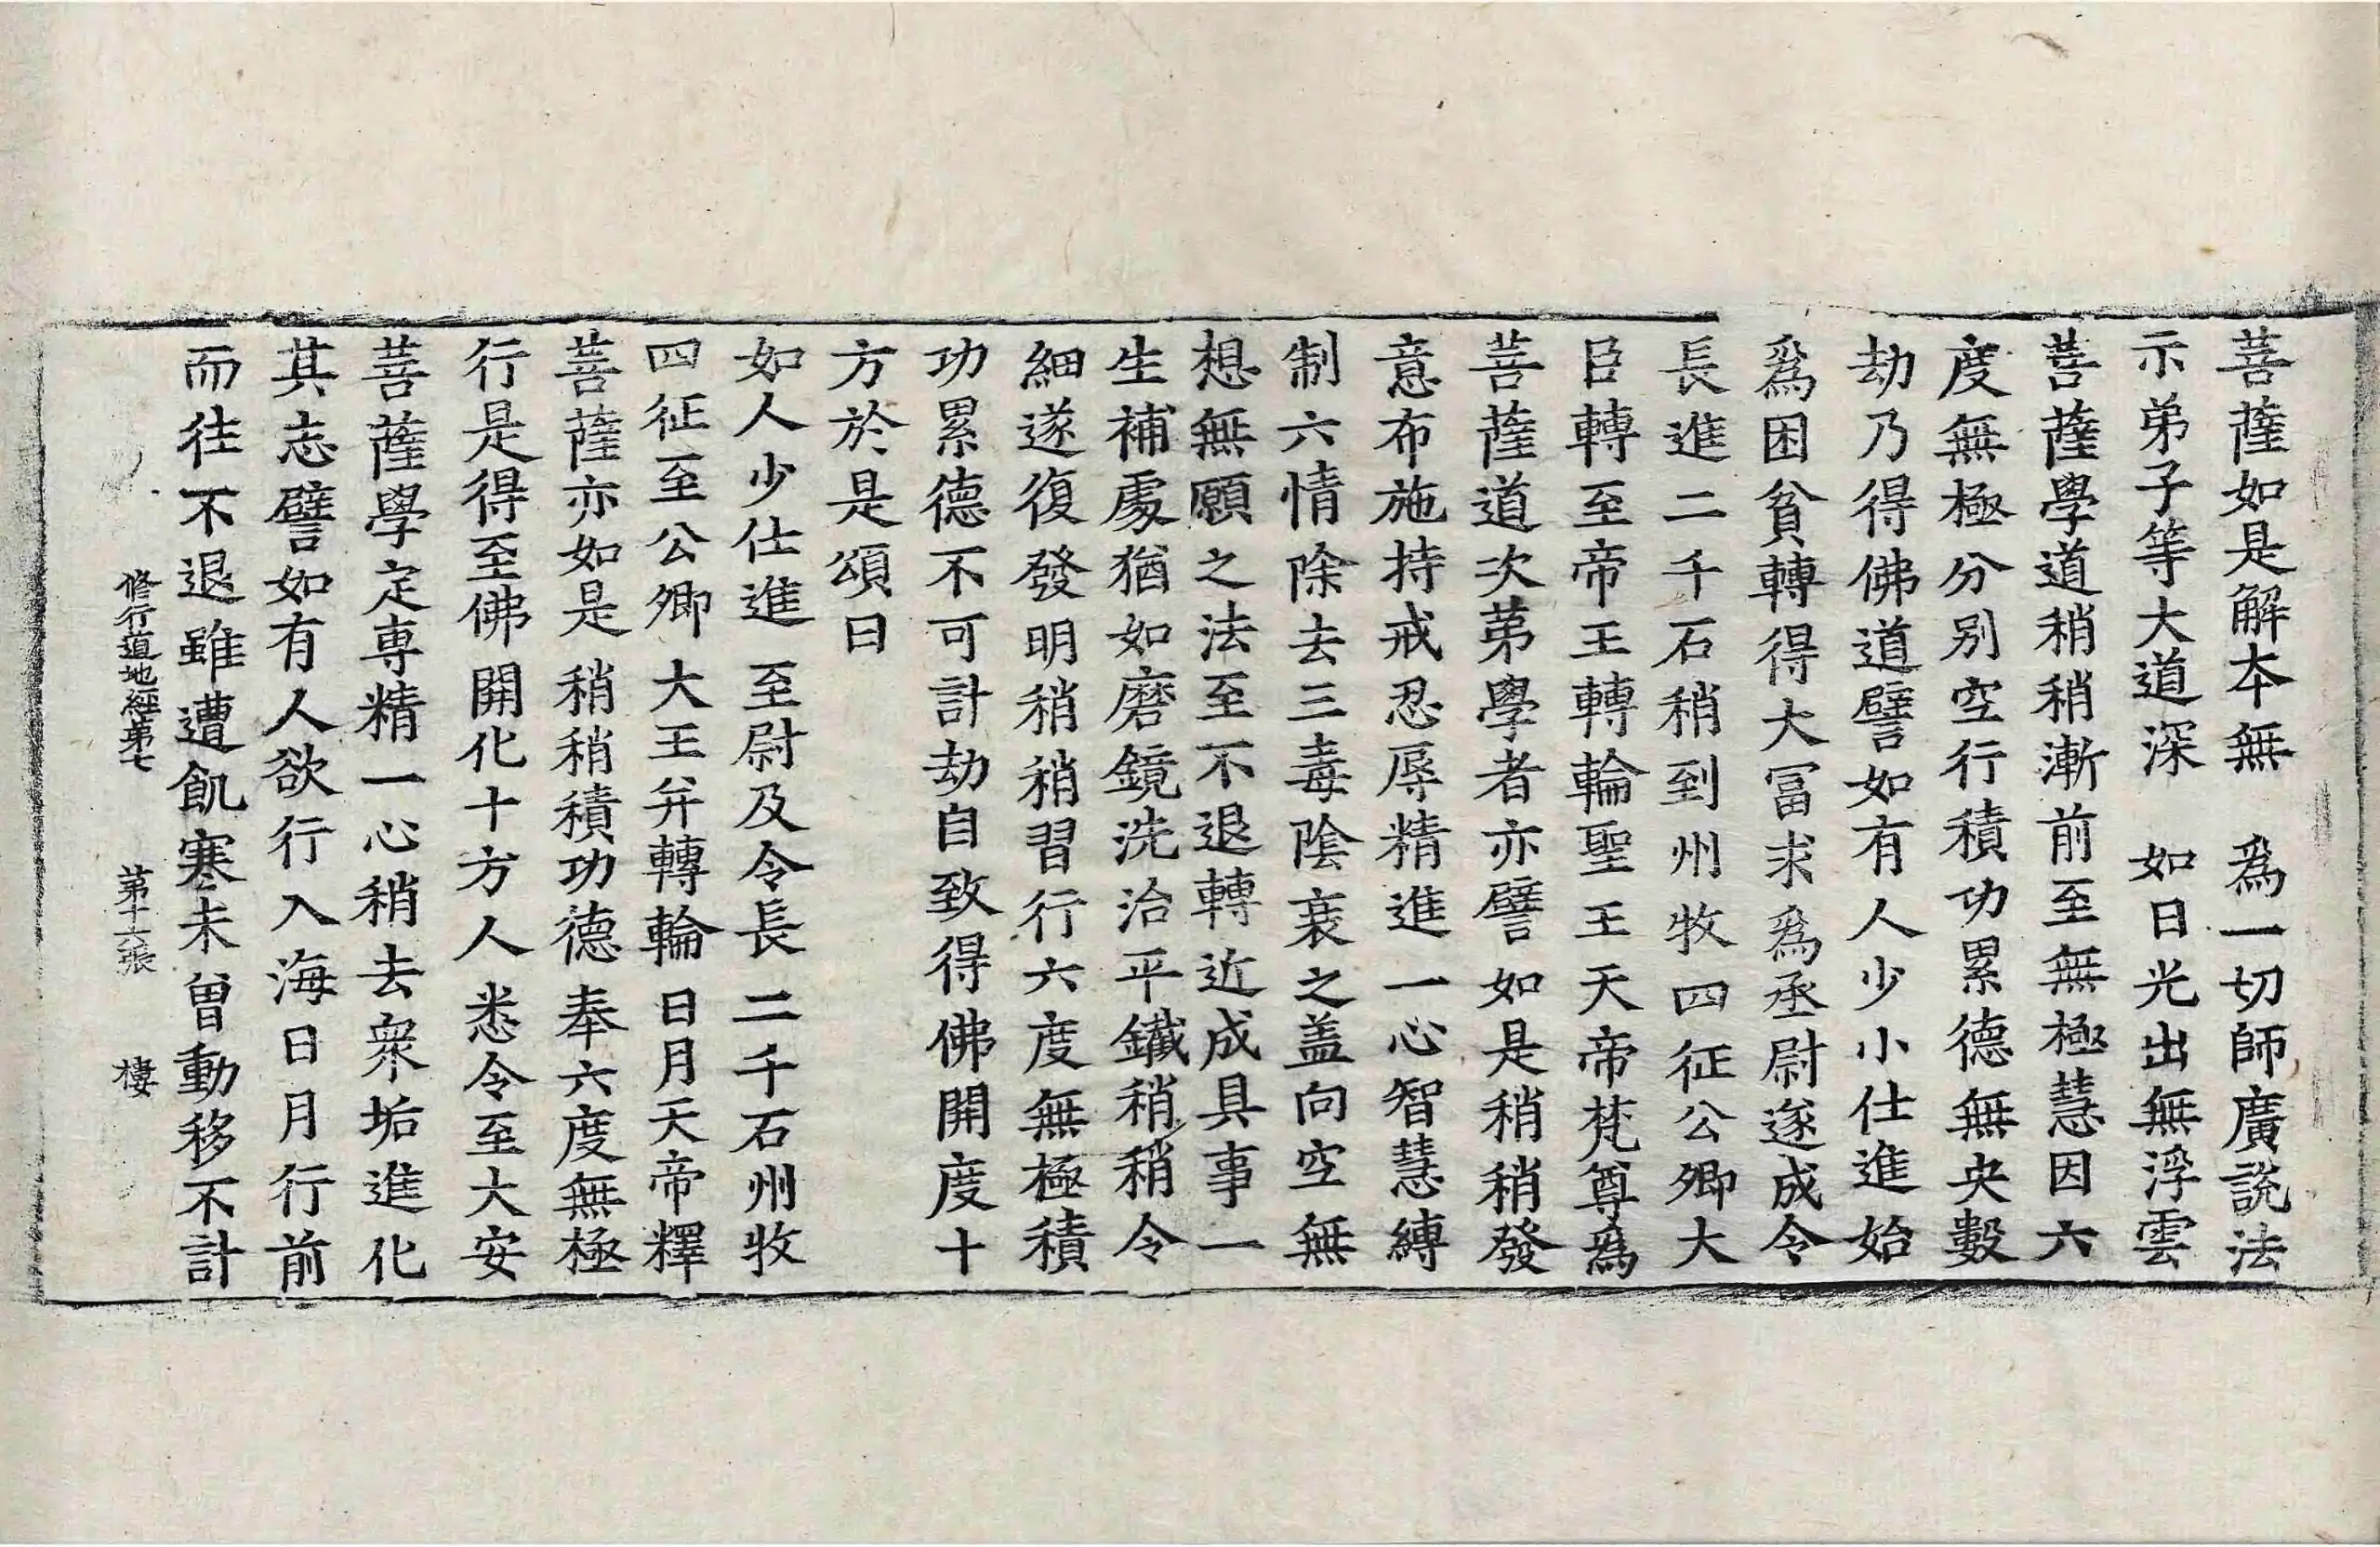 菩薩如是解本無　為一切師廣說法
示弟子等大道深　如日光出無浮雲
菩薩學道稍稍漸前至無極慧因六
度無極分別空行積功累德無央數
劫乃得佛道譬如有人少小仕進始
為困貧轉得大冨求為丞尉遂成令
長進二千石稍到州牧四征公卿大
臣轉至帝王轉輪聖王天帝梵尊為
菩薩道次苐學者亦譬如是稍稍發
意布施持戒忍辱精進一心智慧縛
制六情除去三毒陰衰之盖向空無
想無願之法至不退轉近成具事一
生補處猶如磨鏡洗治平鐵稍稍令
細遂復發明稍稍習行六度無極積
功累德不可計劫自致得佛開度十
方於是頌曰
如人少仕進　至尉及令長　二千石州牧
四征至公卿　大王并轉輪　日月天帝釋
菩薩亦如是　稍稍積功德　奉六度無極
行是得至佛　開化十方人　悉令至大安
菩薩學定專精一心稍去衆垢進化
其志譬如有人欲行入海日月行前
而往不退雖遭飢寒未曽動移不計
修行道地經苐七　苐十六張　棲